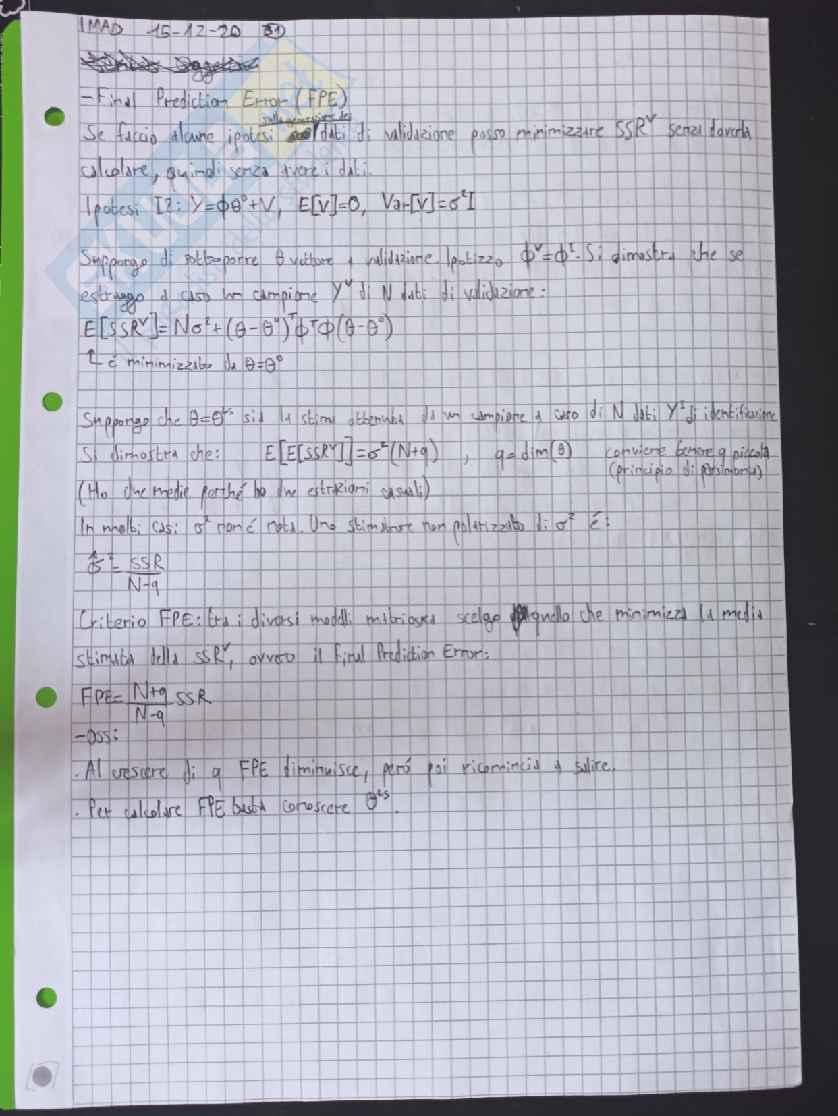 IMAD 15-12-20 31
- Final Prediction Error (FPE)
Se faccio alcune ipotesi sulla generazione dei dati di validazione posso minimizzare SSRⱽ senza doverla
calcolare, quindi senza avere i dati.
Ipotesi I2: Y=Φθ°+V, E[V]=0, Var[V]=σ²I
Suppongo di sottoporre θ vettore a validazione. Ipotizzo Φⱽ=Φᴵ. Si dimostra che se
estraggo a caso un campione Yⱽ di N dati di validazione:
E[SSRⱽ]=Nσ²+(θ-θ°)ᵀΦᵀΦ(θ-θ°)
↑ è minimizzato da θ=θ°
Suppongo che θ=θᴸˢ sia la stima ottenuta da un campione a caso di N dati Yᴵ di identificazione
Si dimostra che: E[E[SSRⱽ]]=σ²(N+q), q=dim(θ) conviene tenere q piccola
(principio di parsimonia)
(Ho due medie perché ho due estrazioni casuali)
In molti casi σ² non é nota. Uno stimatore non polarizzato di σ² é:
σ̂²=SSR
N-q
Criterio FPE: tra i diversi modelli scelgo quello che minimizza la media
stimata della SSRⱽ, ovvero il Final Prediction Error:
FPE=N+q SSR
N-q
-Oss:
. Al crescere di q FPE diminuisce, peró poi ricomincia a salire.
. Per calcolare FPE basta conoscere θᴸˢ.